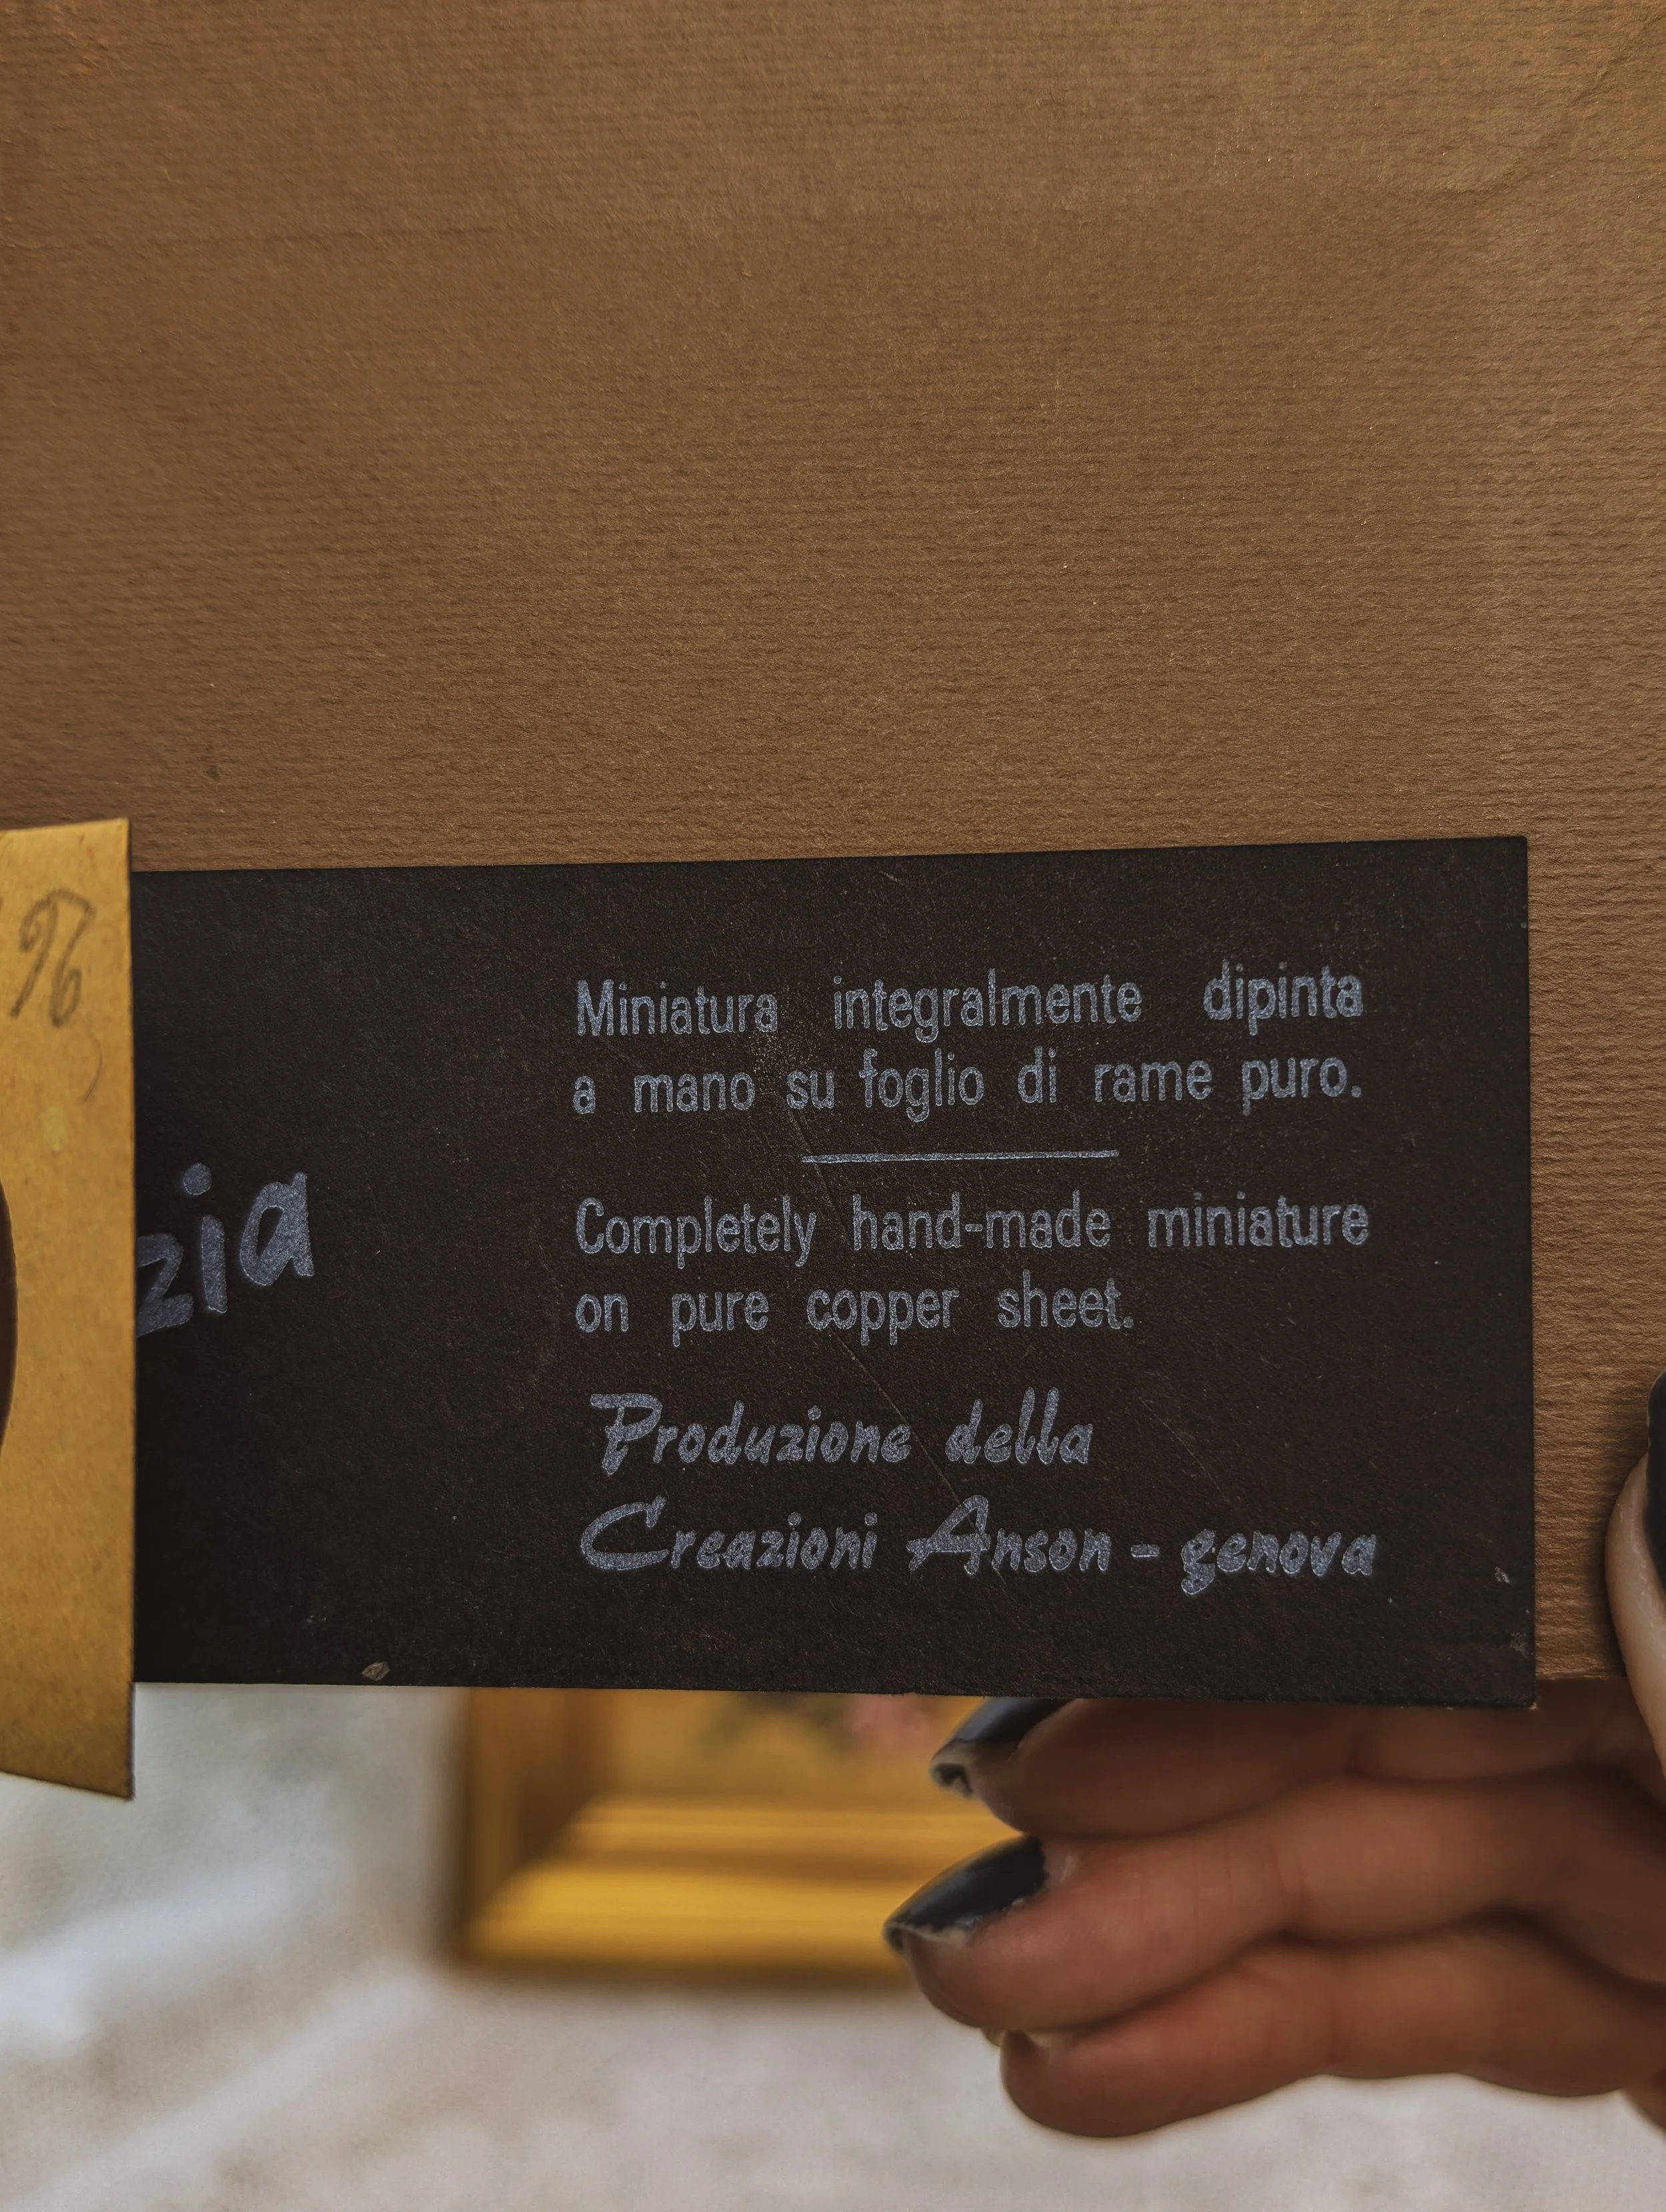 Miniatura integralmente dipinta
a mano su foglio di rame puro.
Completely hand-made miniature
on pure copper sheet.
Produzione della
Creazioni Anson - genova
zia